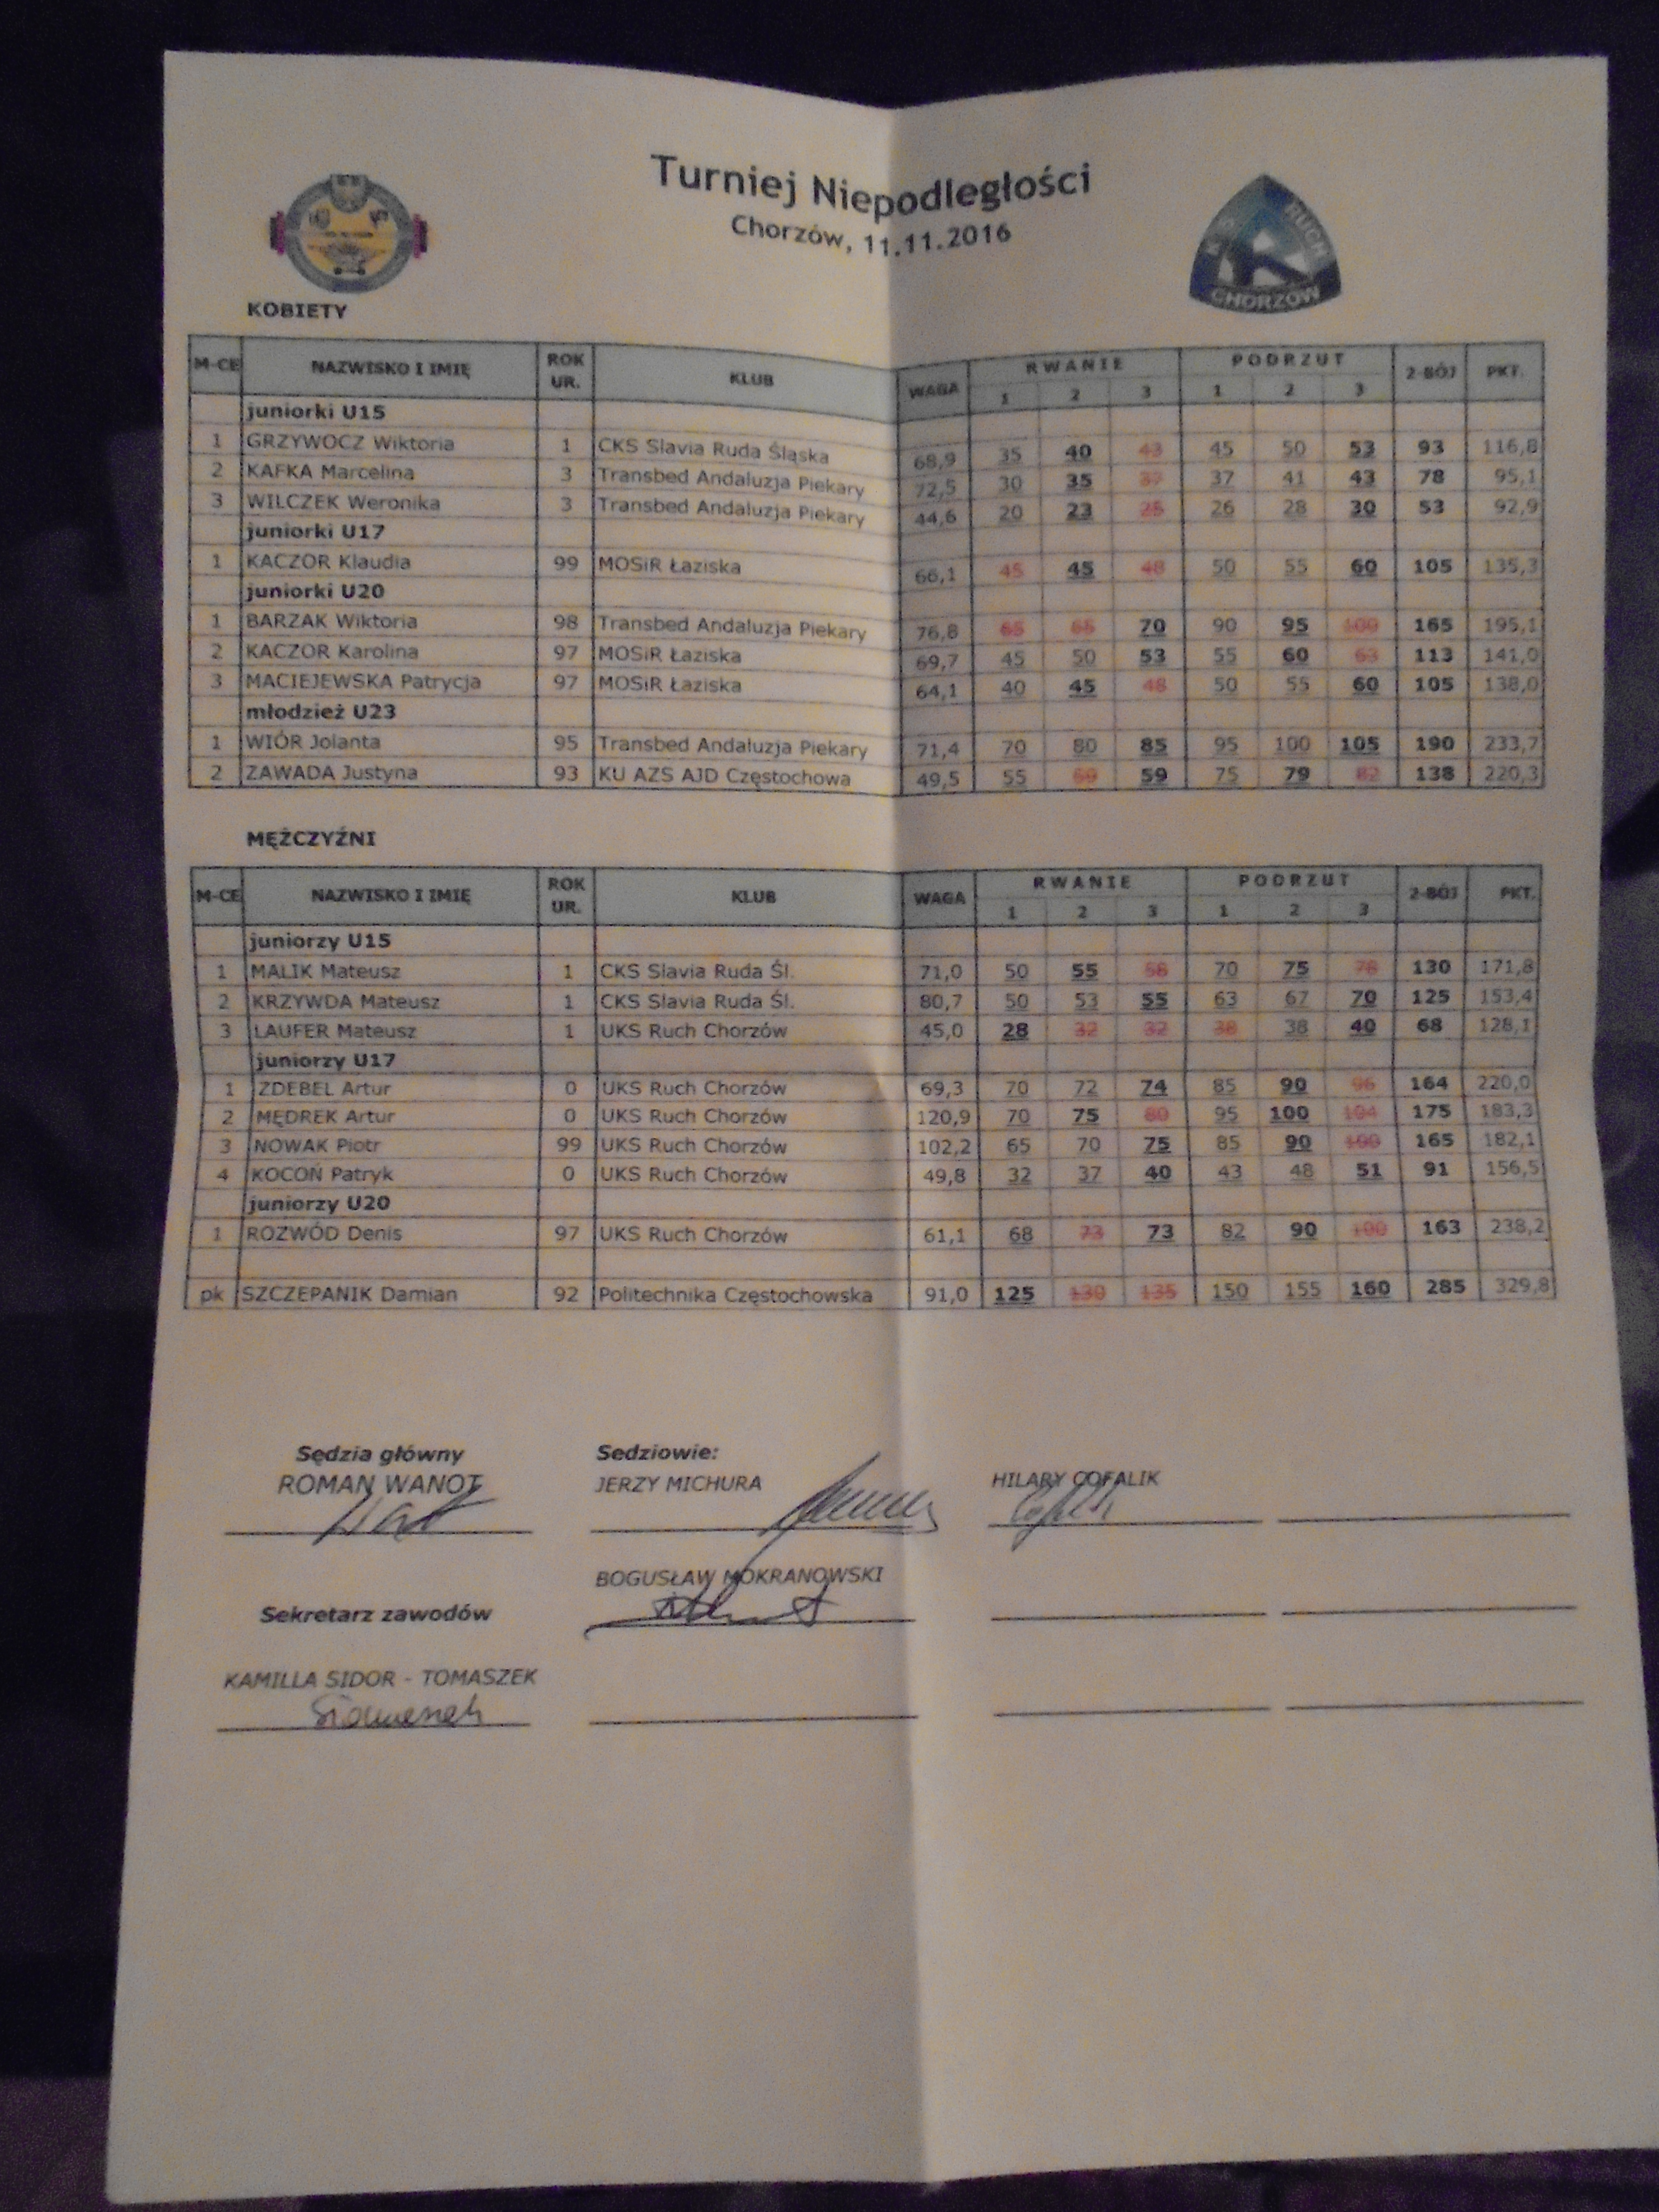 Turniej Niepodległości
Chorzów, 11.11.2016
RUCH
CHORZÓW
KOBIETY
M-CE NAZWISKO I IMIĘ ROK UR. KLUB WAGA RWANIE PODRZUT 2-BÓJ PKT.
1 2 3 1 2 3
juniorki U15
1 GRZYWOCZ Wiktoria 1 CKS Slavia Ruda Śląska 68,9 35 40 43 45 50 53 93 116,8
2 KAFKA Marcelina 3 Transbed Andaluzja Piekary 72,5 30 35 37 37 41 43 78 95,1
3 WILCZEK Weronika 3 Transbed Andaluzja Piekary 44,6 20 23 25 26 28 30 53 92,9
juniorki U17
1 KACZOR Klaudia 99 MOSiR Łaziska 66,1 45 45 48 50 55 60 105 135,3
juniorki U20
1 BARZAK Wiktoria 98 Transbed Andaluzja Piekary 76,8 65 65 70 90 95 100 165 195,1
2 KACZOR Karolina 97 MOSiR Łaziska 69,7 45 50 53 55 60 63 113 141,0
3 MACIEJEWSKA Patrycja 97 MOSiR Łaziska 64,1 40 45 48 50 55 60 105 138,0
młodzież U23
1 WIÓR Jolanta 95 Transbed Andaluzja Piekary 71,4 70 80 85 95 100 105 190 233,7
2 ZAWADA Justyna 93 KU AZS AJD Częstochowa 49,5 55 59 75 79 82 138 220,3
MĘŻCZYŹNI
M-CE NAZWISKO I IMIĘ ROK UR. KLUB WAGA RWANIE PODRZUT 2-BÓJ PKT.
1 2 3 1 2 3
juniorzy U15
1 MALIK Mateusz 1 CKS Slavia Ruda Śl. 71,0 50 55 58 70 75 78 130 171,8
2 KRZYWDA Mateusz 1 CKS Slavia Ruda Śl. 80,7 50 53 55 63 67 70 125 153,4
3 LAUFER Mateusz 1 UKS Ruch Chorzów 45,0 28 32 32 38 38 40 68 128,1
juniorzy U17
1 ZDEBEL Artur 0 UKS Ruch Chorzów 69,3 70 72 74 85 90 96 164 220,0
2 MĘDREK Artur 0 UKS Ruch Chorzów 120,9 70 75 80 95 100 104 175 183,3
3 NOWAK Piotr 99 UKS Ruch Chorzów 102,2 65 70 75 85 90 100 165 182,1
4 KOCOŃ Patryk 0 UKS Ruch Chorzów 49,8 32 37 40 43 48 51 91 156,5
juniorzy U20
1 ROZWÓD Denis 97 UKS Ruch Chorzów 61,1 68 73 73 82 90 100 163 238,2
pk SZCZEPANIK Damian 92 Politechnika Częstochowska 91,0 125 130 135 150 155 160 285 329,8
Sędzia główny Sedziowie:
ROMAN WANOT JERZY MICHURA HILARY COFALIK
BOGUSŁAW MOKRANOWSKI
Sekretarz zawodów
KAMILLA SIDOR - TOMASZEK